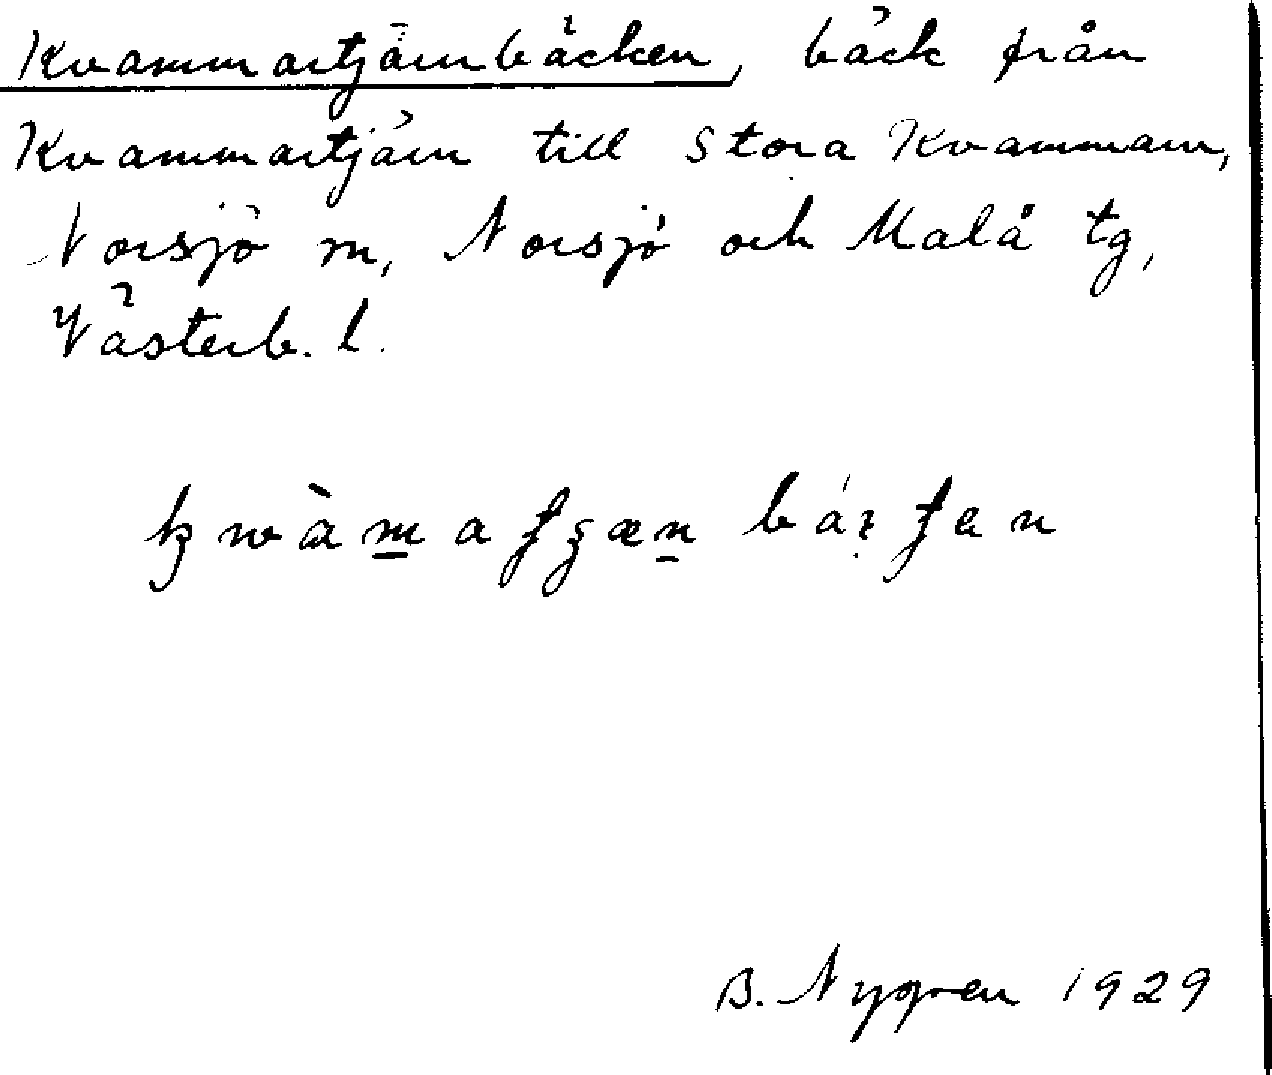 Kvammartjärnbäcken, bäck från
Kvammartjärn till Stora Kvammarn,
Norsjö m, Norsjö och Malå tg,
Västerb. l.
B. Nygren 1929